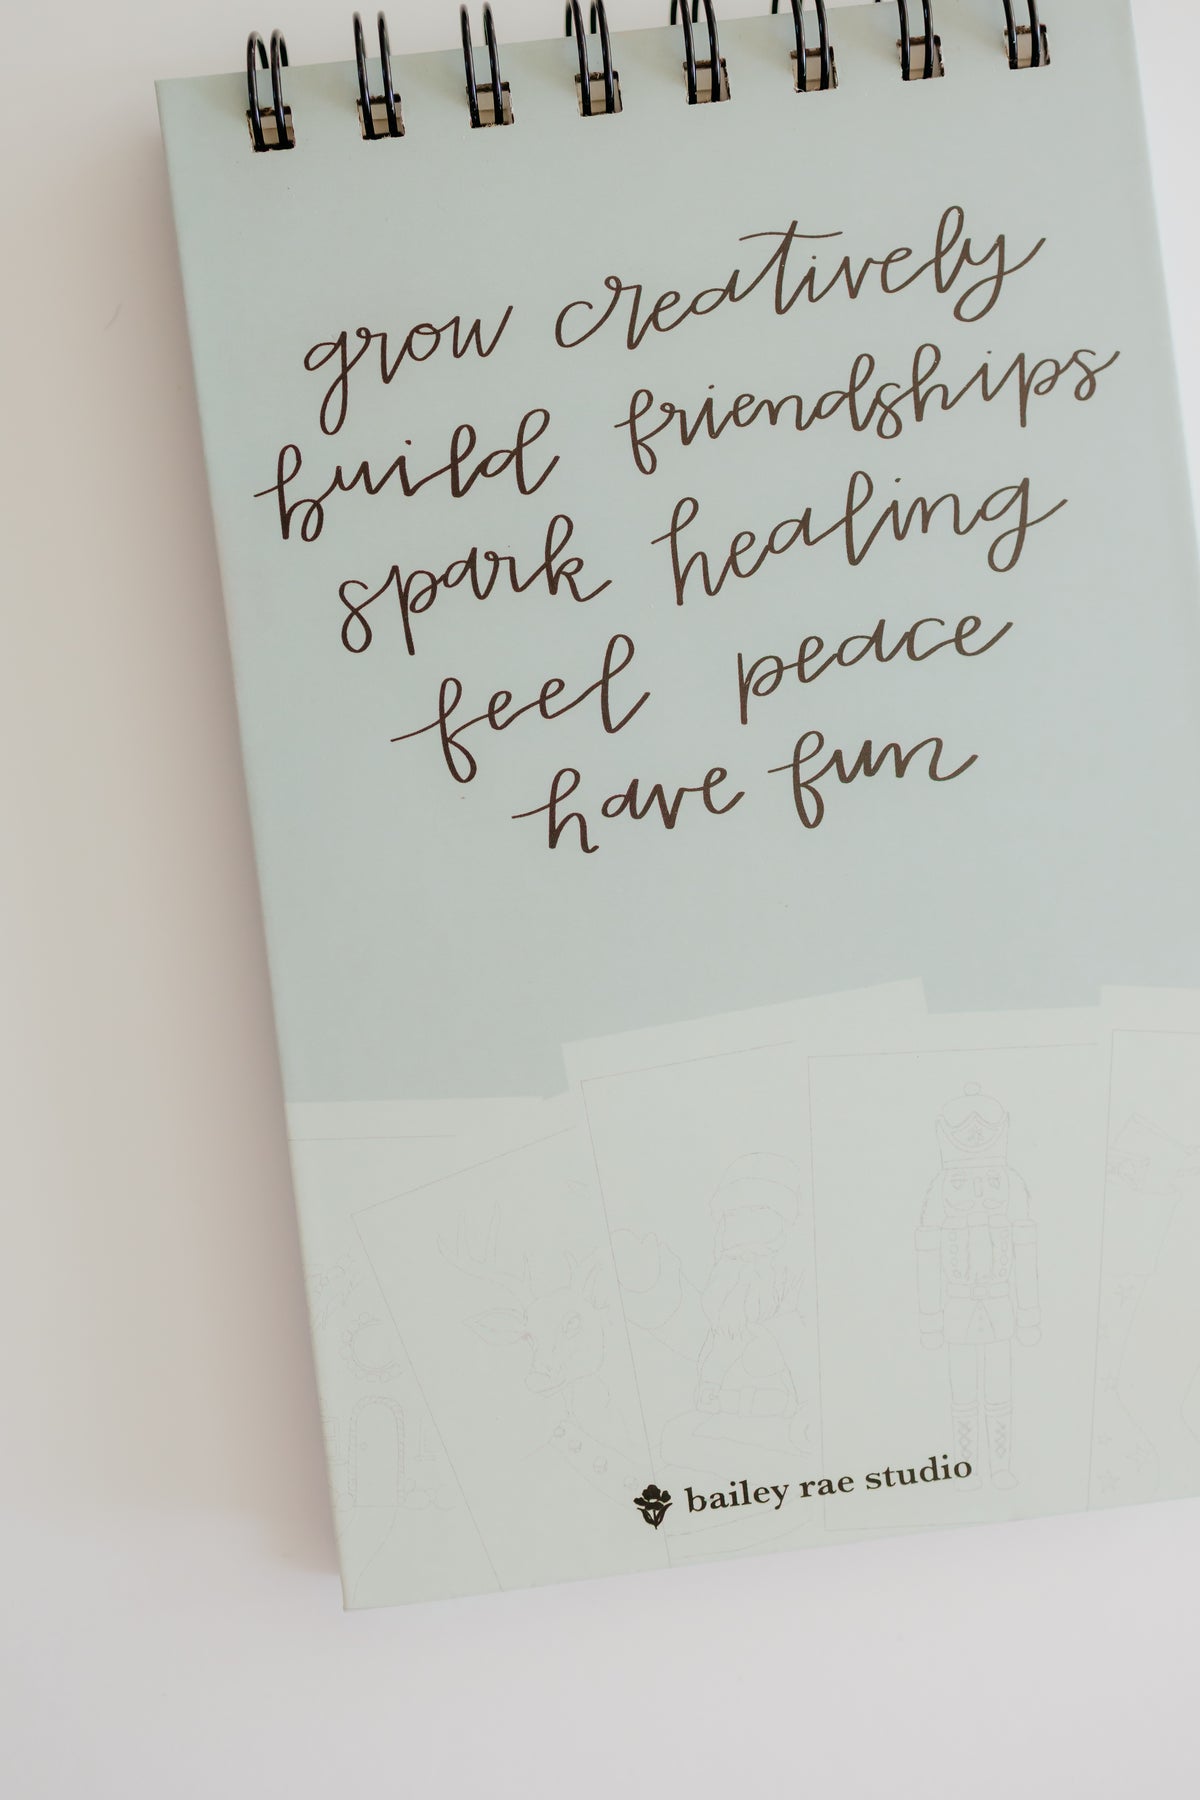 grow creatively
build friendships
spark healing
feel peace
have fun
bailey rae studio